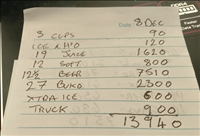 Date 8 DEC
3 CUPS 90
ICE N H2O 120
19 JUICE 1620
12 SOFT 800
12½ BEER 7510
27 2300
XTRA ICE 600
TRUCK 900
13940